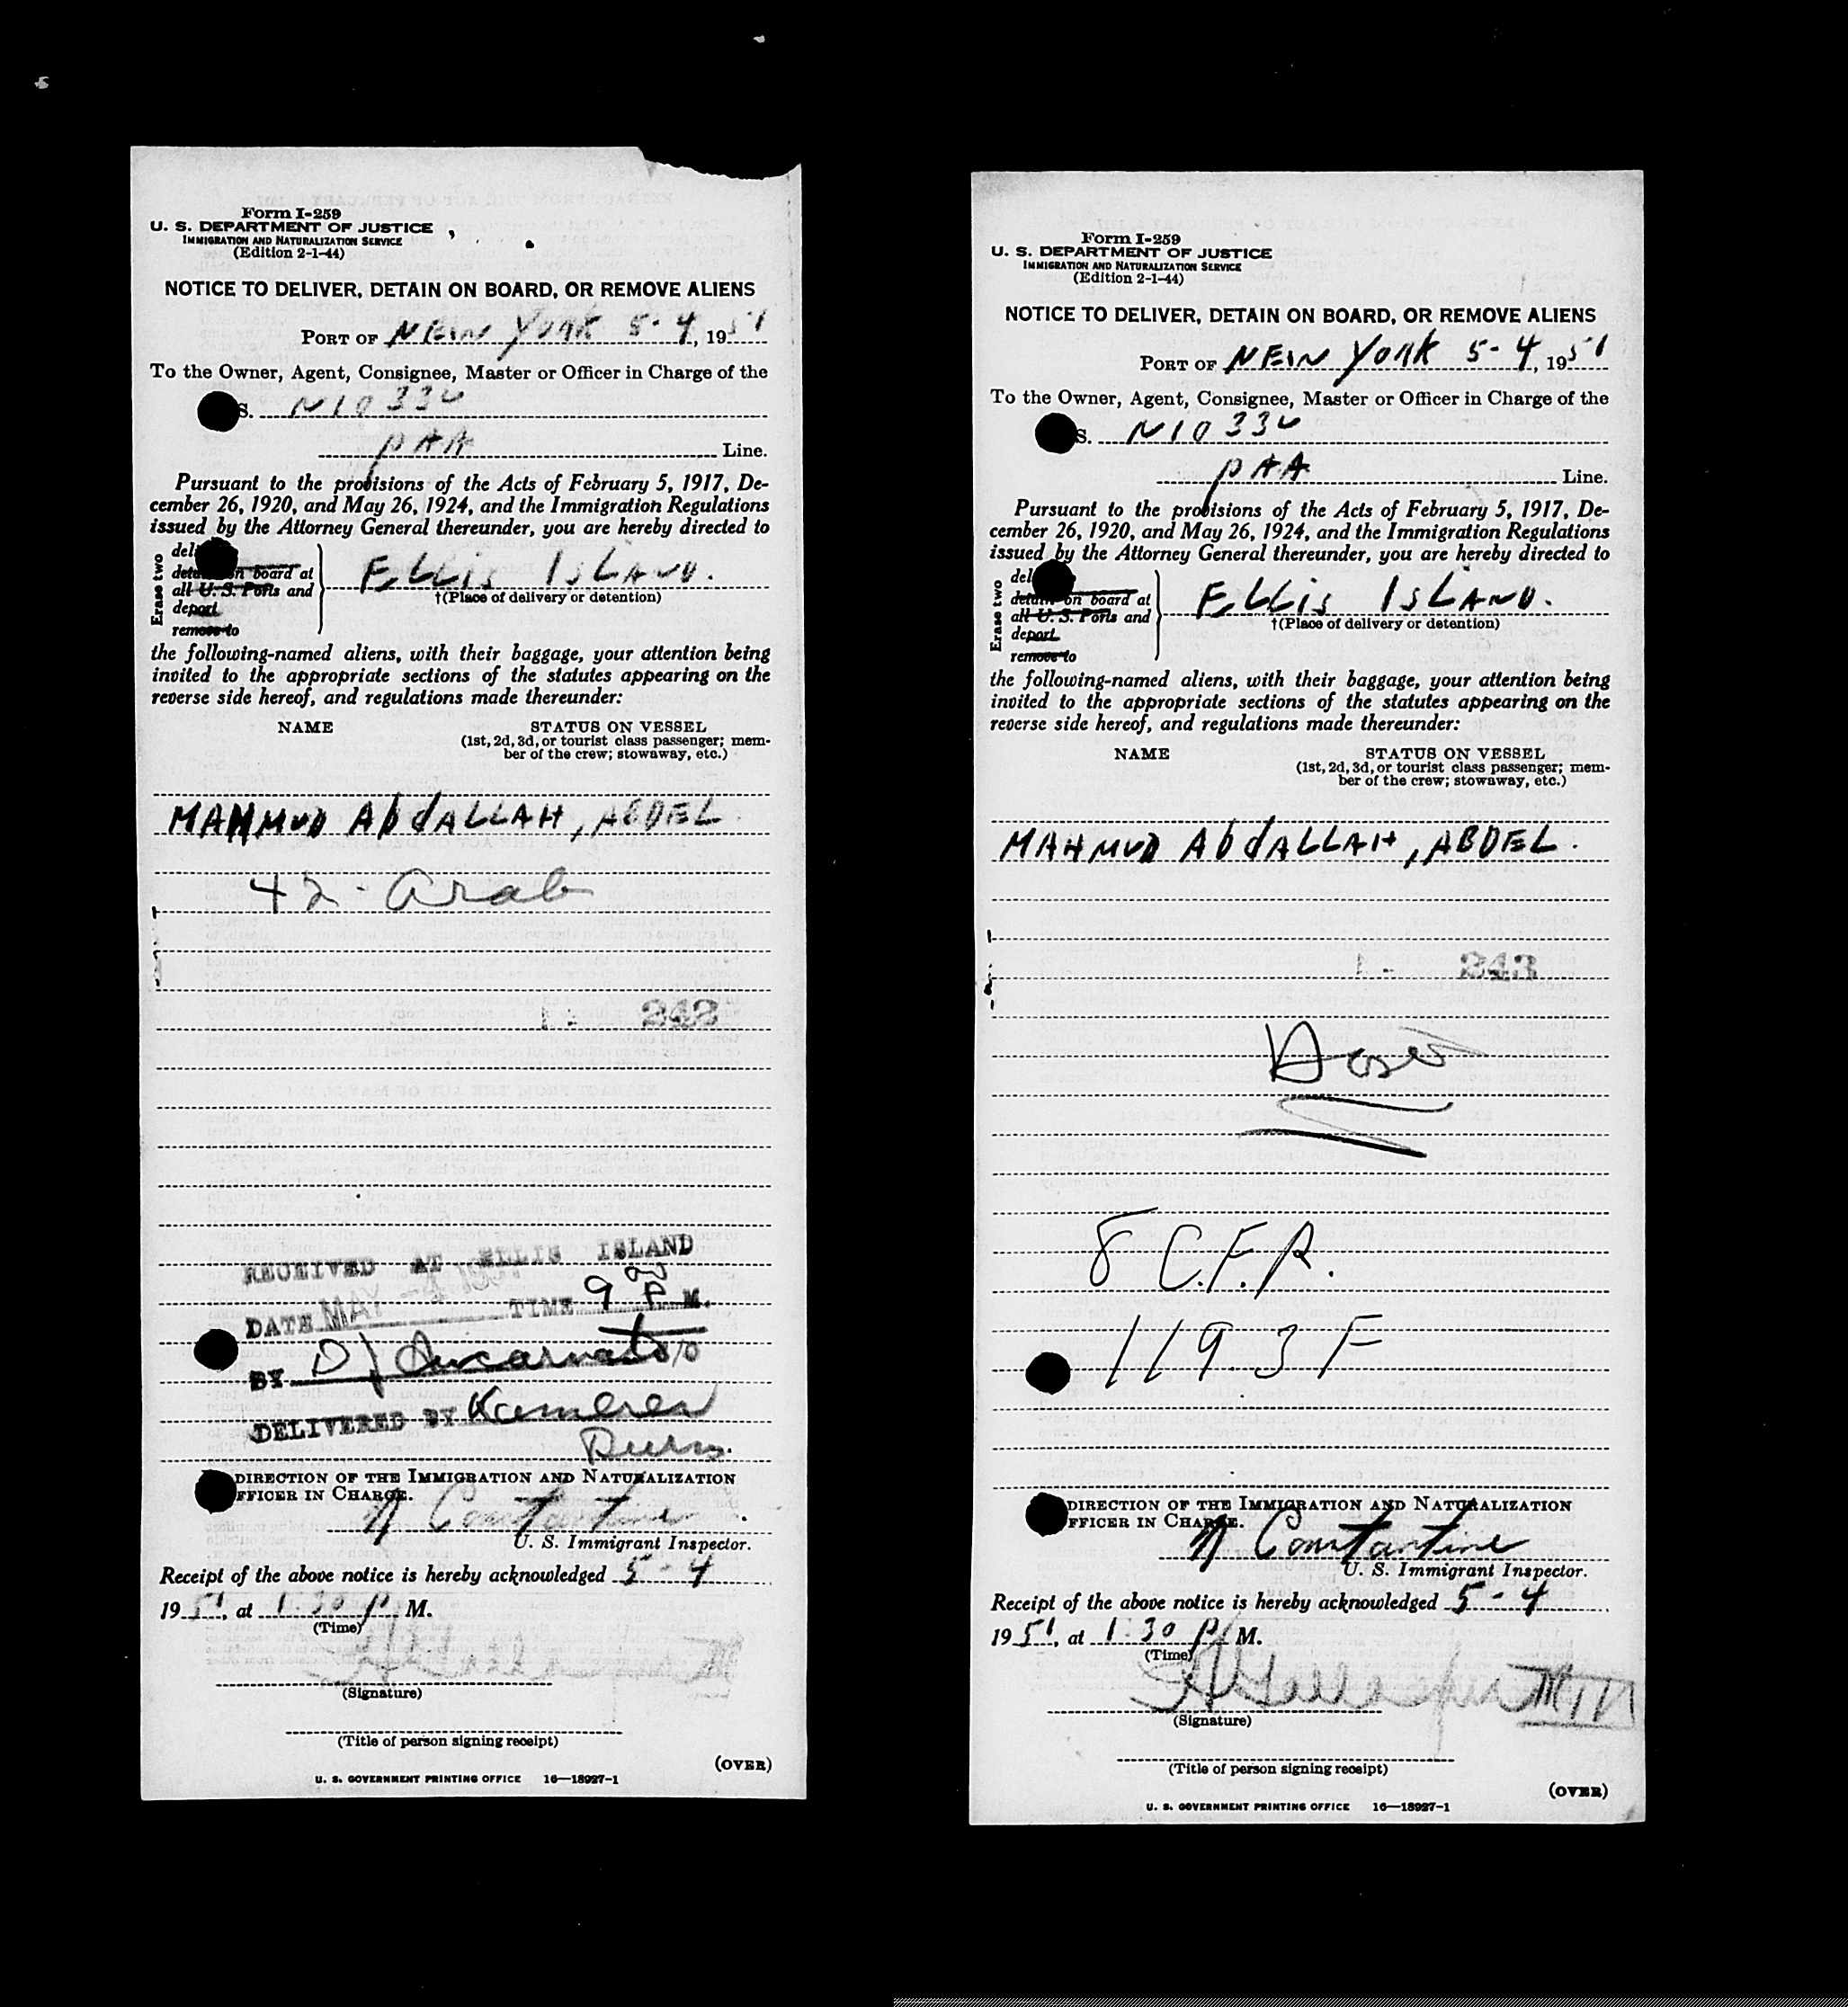 Form I-259
U. S. DEPARTMENT OF JUSTICE
IMMIGRATION AND NATURALIZATION SERVICE
(Edition 2-1-44)
NOTICE TO DELIVER, DETAIN ON BOARD, OR REMOVE ALIENS
PORT OF NEW YORK 5-4, 1951
To the Owner, Agent, Consignee, Master or Officer in Charge of the
S. N1033U
PAA Line.
Pursuant to the provisions of the Acts of February 5, 1917, De-
cember 26, 1920, and May 26, 1924, and the Immigration Regulations
issued by the Attorney General thereunder, you are hereby directed to
Erase two
del
detain on board at
all U. S. Ports and
deport
remove to
ELLIS ISLAND.
†(Place of delivery or detention)
the following-named aliens, with their baggage, your attention being
invited to the appropriate sections of the statutes appearing on the
reverse side hereof, and regulations made thereunder:
NAME STATUS ON VESSEL
(1st, 2d, 3d, or tourist class passenger; mem-
ber of the crew; stowaway, etc.)
MAHMUD AbdALLAH, ABDEL
42 - Arab
243
RECEIVED AT ELLIS ISLAND
DATE MAY TIME 9 00 P M.
BY
DELIVERED BY
DIRECTION OF THE IMMIGRATION AND NATURALIZATION
FFICER IN CHARGE.
N Constantine
U. S. Immigrant Inspector.
Receipt of the above notice is hereby acknowledged 5-4
1951, at 1:30 P. M.
(Time)
(Signature)
(Title of person signing receipt)
(OVER)
U. S. GOVERNMENT PRINTING OFFICE 16—18927-1
Form I-259
U. S. DEPARTMENT OF JUSTICE
IMMIGRATION AND NATURALIZATION SERVICE
(Edition 2-1-44)
NOTICE TO DELIVER, DETAIN ON BOARD, OR REMOVE ALIENS
PORT OF NEW YORK 5-4, 1951
To the Owner, Agent, Consignee, Master or Officer in Charge of the
S. N1033U
PAA Line.
Pursuant to the provisions of the Acts of February 5, 1917, De-
cember 26, 1920, and May 26, 1924, and the Immigration Regulations
issued by the Attorney General thereunder, you are hereby directed to
Erase two
del
detain on board at
all U. S. Ports and
deport
remove to
ELLIS ISLAND.
†(Place of delivery or detention)
the following-named aliens, with their baggage, your attention being
invited to the appropriate sections of the statutes appearing on the
reverse side hereof, and regulations made thereunder:
NAME STATUS ON VESSEL
(1st, 2d, 3d, or tourist class passenger; mem-
ber of the crew; stowaway, etc.)
MAHMUD AbdALLAH, ABDEL.
243
8 C.F.R.
119.3 F
DIRECTION OF THE IMMIGRATION AND NATURALIZATION
FFICER IN CHARGE.
N Constantine
U. S. Immigrant Inspector.
Receipt of the above notice is hereby acknowledged 5-4
1951, at 1:30 P. M.
(Time)
(Signature)
(Title of person signing receipt)
(OVER)
U. S. GOVERNMENT PRINTING OFFICE 16—18927-1